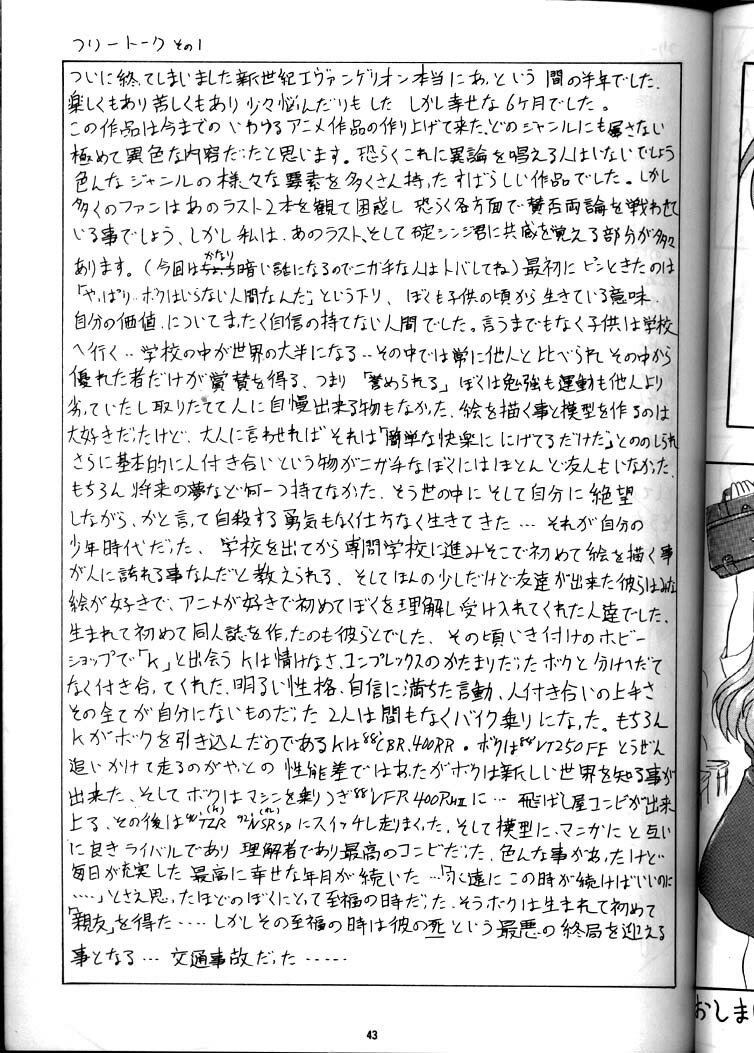 フリートーク その1
ついに終ってしまいました新世紀エヴァンゲリオン本当にあっという間の半年でした。
楽しくもあり苦しくもあり少々悩んだりもした しかし幸せな6ヶ月でした。
この作品は今までのいわゆるアニメ作品の作り上げて来た、どのジャンルにも属さない
極めて異色な内容だったと思います。恐らくこれに異論を唱える人はいないでしょう
色んなジャンルの様々な要素を多くさん持ったすばらしい作品でした。しかし
多くのファンはあのラスト2本を観て困惑し 恐らく各方面で賛否両論を戦わせて
いる事でしょう、しかし私は、あのラスト、そして碇シンジ君に共感を覚える部分が多々
あります。(今回はかなり暗い話になるのでニガ手な人はトバしてね)最初にピンときたのは
「やっぱり‥ボクはいらない人間なんだ」という下り、ぼくも子供の頃から生きている意味、
自分の価値、についてまったく自信の持てない人間でした。言うまでもなく子供は学校
へ行く‥学校の中が世界の大半になる‥その中では常に他人と比べられその中から
優れた者だけが賞賛を得る、つまり「誉められる」ぼくは勉強も運動も他人より
劣っていたし取りたてて人に自慢出来る物もなかった、絵を描く事と模型を作るのは
大好きだったけど、大人に言わせればそれは「簡単な快楽ににげてるだけだ」とののしられ
さらに基本的に人付き合いという物がニガ手なぼくにはほとんど友人もいなかった、
もちろん将来の夢など何一つ持てなかった、そう世の中にそして自分に絶望
しながら、かと言って自殺する勇気もなく仕方なく生きてきた…それが自分の
少年時代だった、学校を出てから専問学校に進みそこで初めて絵を描く事
が人に誇れる事なんだと教えられる、そしてほんの少しだけど友達が出来た彼らはみな
絵が好きで、アニメが好きで初めてぼくを理解し受け入れてくれた人達でした、
生まれて初めて同人誌を作ったのも彼らとでした、その頃いき付けのホビー
ショップで「K」と出会うKは情けなさ、コンプレックスのかたまりだったボクと分けへだて
なく付き合ってくれた、明るい性格、自信に満ちた言動、人付き合いの上手さ
その全てが自分にないものだった 2人は間もなくバイク乗りになった。もちろん
Kがボクを引き込んだのであるKは'88CBR400RR・ボクは'88VT250FEとうぜん
追いかけて走るのがやっとの 性能差ではあったがボクは新しい世界を知る事が
出来た、そしてボクはマシンを乗りつぎ'88VFR400RにⅡに…飛ばし屋コンビが出来
上る、その後は'91TZR(K) '92NSRSP(ボク)にスイッチし走りまくった、そして模型に、マンガにと互い
に良きライバルであり 理解者であり最高のコンビだった、色んな事があったけど
毎日が充実した 最高に幸せな年月が続いた…「永遠にこの時が続けばいいのに
‥‥」とさえ思ったほどのぼくにとって至福の時だった、そうボクは生まれて初めて
「親友」を得た‥‥しかしその至福の時は彼の死という最悪の終局を迎える
事となる…交通事故だった‥‥‥
43
おしまい